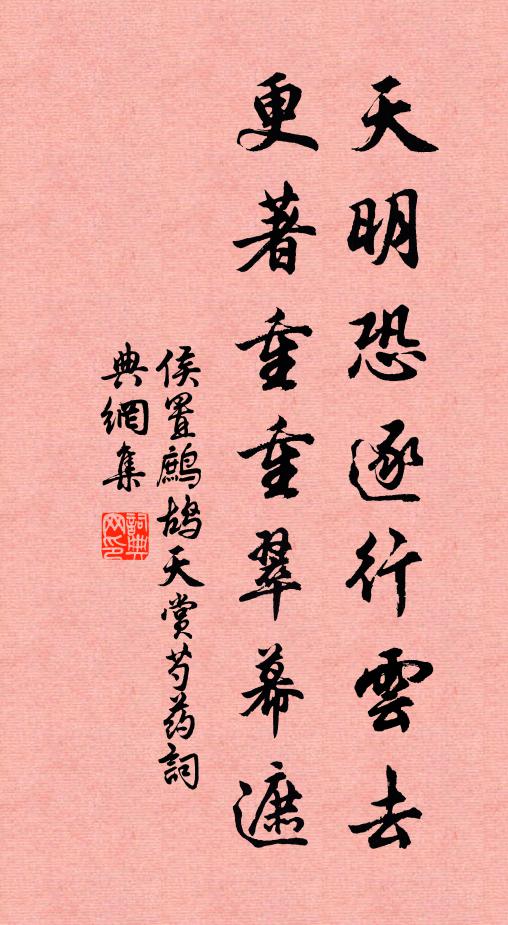 天明恐逐行雲去
更著重重翠幕遮
侯置鷓鴣天賞芍药詞
典網集
詞典網印